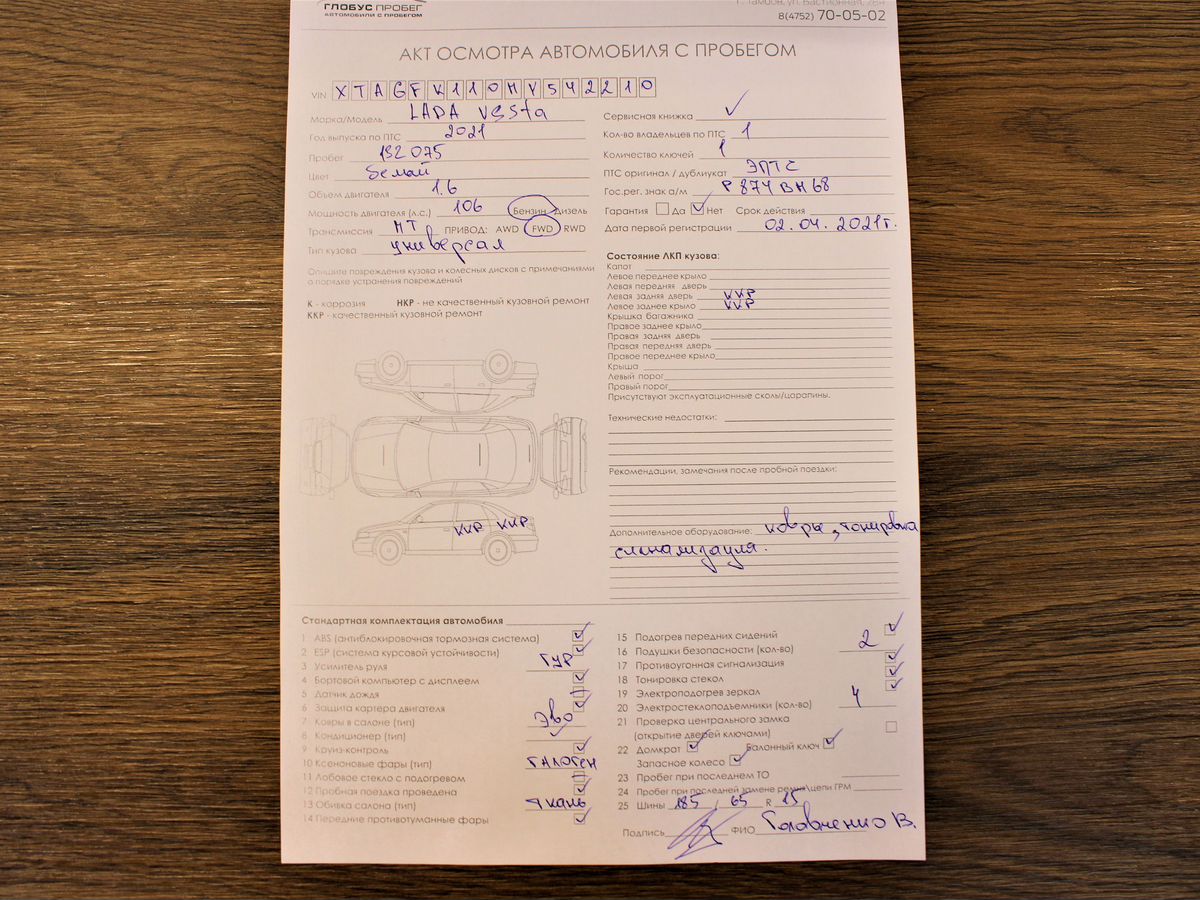 ГЛОБУС ПРОБЕГ
АВТОМОБИЛИ С ПРОБЕГОМ
8(4752) 70-05-02
АКТ ОСМОТРА АВТОМОБИЛЯ С ПРОБЕГОМ
VIN XTAGFK110MY542210
Марка/Модель LADA Vesta
Год выпуска по ПТС 2021
Пробег 192 075
Цвет белый
Объем двигателя 1.6
Мощность двигателя (л.с.) 106 Бензин Дизель
Трансмиссия МТ ПРИВОД: AWD FWD RWD
Тип кузова универсал
Опишите повреждения кузова и колесных дисков с примечаниями
о порядке устранения повреждений
К - коррозия НКР - не качественный кузовной ремонт
ККР - качественный кузовной ремонт
ККР ККР
Сервисная книжка
Кол-во владельцев по ПТС 1
Количество ключей 1
ПТС оригинал / дубликат ЭПТС
Гос.рег. знак а/м Р 874 ВН 68
Гарантия Да Нет Срок действия
Дата первой регистрации 02.04.2021г.
Состояние ЛКП кузова:
Капот
Левое переднее крыло
Левая передняя дверь
Левая задняя дверь ККР
Левое заднее крыло ККР
Крышка багажника
Правое заднее крыло
Правая задняя дверь
Правая передняя дверь
Правое переднее крыло
Крыша
Левый порог
Правый порог
Присутствуют эксплуатационные сколы/царапины.
Технические недостатки:
Рекомендации, замечания после пробной поездки:
Дополнительное оборудование: ковры, тонировка
сигнализация.
Стандартная комплектация автомобиля
1 ABS (антиблокировочная тормозная система)
2 ESP (система курсовой устойчивости)
3 Усилитель руля ГУР
4 Бортовой компьютер с дисплеем
5 Датчик дождя
6 Защита картера двигателя
7 Ковры в салоне (тип) Эво
8 Кондиционер (тип)
9 Круиз-контроль
10 Ксеноновые фары (тип) ГАЛОГЕН
11 Лобовое стекло с подогревом
12 Пробная поездка проведена
13 Обивка салона (тип) Ткань
14 Передние противотуманные фары
15 Подогрев передних сидений
16 Подушки безопасности (кол-во) 2
17 Противоугонная сигнализация
18 Тонировка стекол
19 Электроподогрев зеркал
20 Электростеклоподъемники (кол-во) 4
21 Проверка центрального замка
(открытие дверей ключами)
22 Домкрат Балонный ключ
Запасное колесо
23 Пробег при последнем ТО
24 Пробег при последней замене ремня\цепи ГРМ
25 Шины 185 / 65 R 15
Подпись ФИО Головченко В.